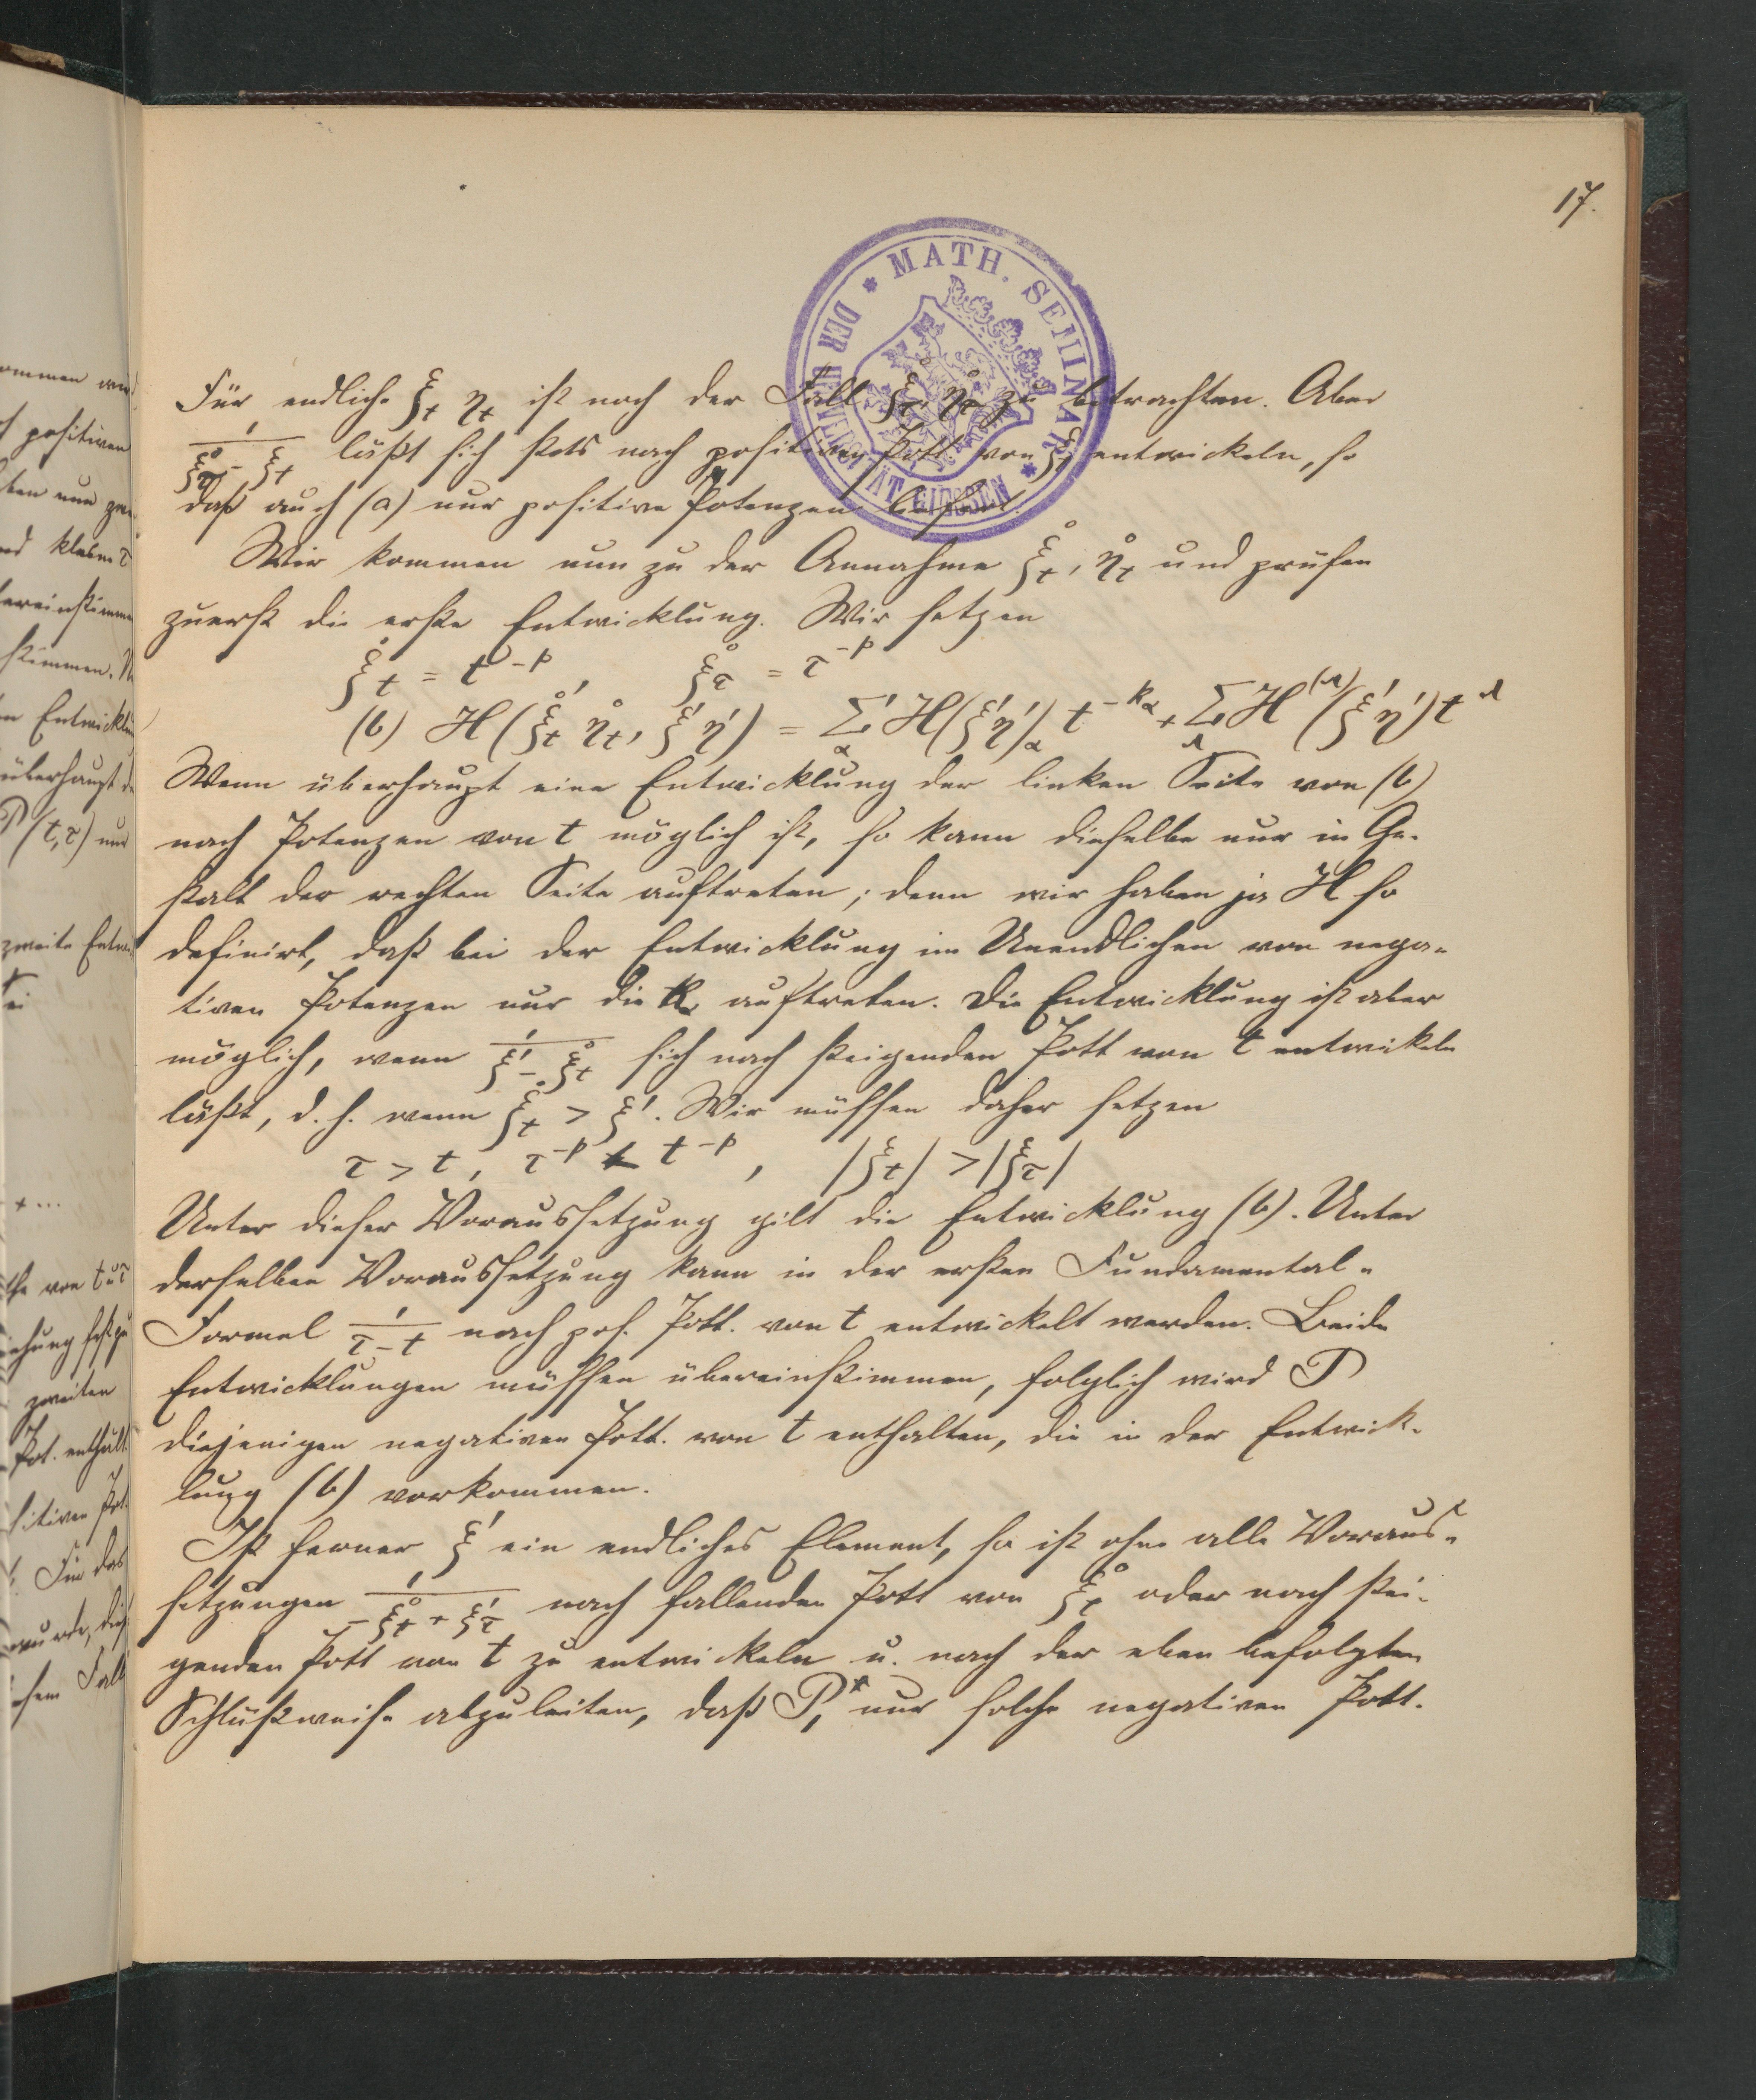 17.
* MATH. SEMINAR * DER UNIVERSITÄT GIESSEN
Für endliche ξ_t η_t ist noch der Fall ξ̊_τ η̊_τ zu betrachten. Aber
1/(ξ̊_τ - ξ_t) läßt sich stets nach positiven Pott von ξ_t entwickeln, so
daß auch (a) nur positive Potenzen liefert.
Wir kommen nun zu der Annahme ξ̊_t, η̊_t und prüfen
zuerst die erste Entwicklung. Wir setzen
ξ̊_t = t^{-p}, ξ̊_τ = τ^{-p}
(b) H(ξ̊_t η̊_t, ξ'η') = Σ'_α H(ξ'η')_α t^{-k_α} + Σ_λ H^{(λ)}(ξ'η') t^λ
Wenn überhaupt eine Entwicklung der linken Seite von (b)
nach Potenzen von t möglich ist, so kann dieselbe nur in Ge-
stalt der rechten Seite auftreten; denn wir haben ja H so
definirt, daß bei der Entwicklung im Unendlichen von nega-
tiven Potenzen nur die k_α auftreten. Die Entwicklung ist aber
möglich, wenn 1/(ξ' - ξ̊_t) sich nach steigenden Pott von t entwikeln
läßt, d. h. wenn ξ̊_t > ξ'. Wir müssen daher setzen
τ > t, τ^{-p} < t^{-p}, |ξ_t| > |ξ_τ|
Unter dieser Voraussetzung gilt die Entwicklung (b). Unter
derselben Voraussetzung kann in der ersten Fundamental-
Formel 1/(τ - t) nach pos. Pott. von t entwickelt werden. Beide
Entwicklungen müssen übereinstimmen, folglich wird P
diejenigen negativen Pott. von t enthalten, die in der Entwick-
lung (b) vorkommen.
Ist ferner ξ' ein endliches Element, so ist ohne alle Voraus-
setzungen 1/(-ξ̊_t + ξ'_τ) nach fallenden Pott von ξ̊_t oder nach stei-
genden Pott von t zu entwickeln u. nach der eben befolgten
Schlußweise abzuleiten, daß P, nur solche negativen Pott.